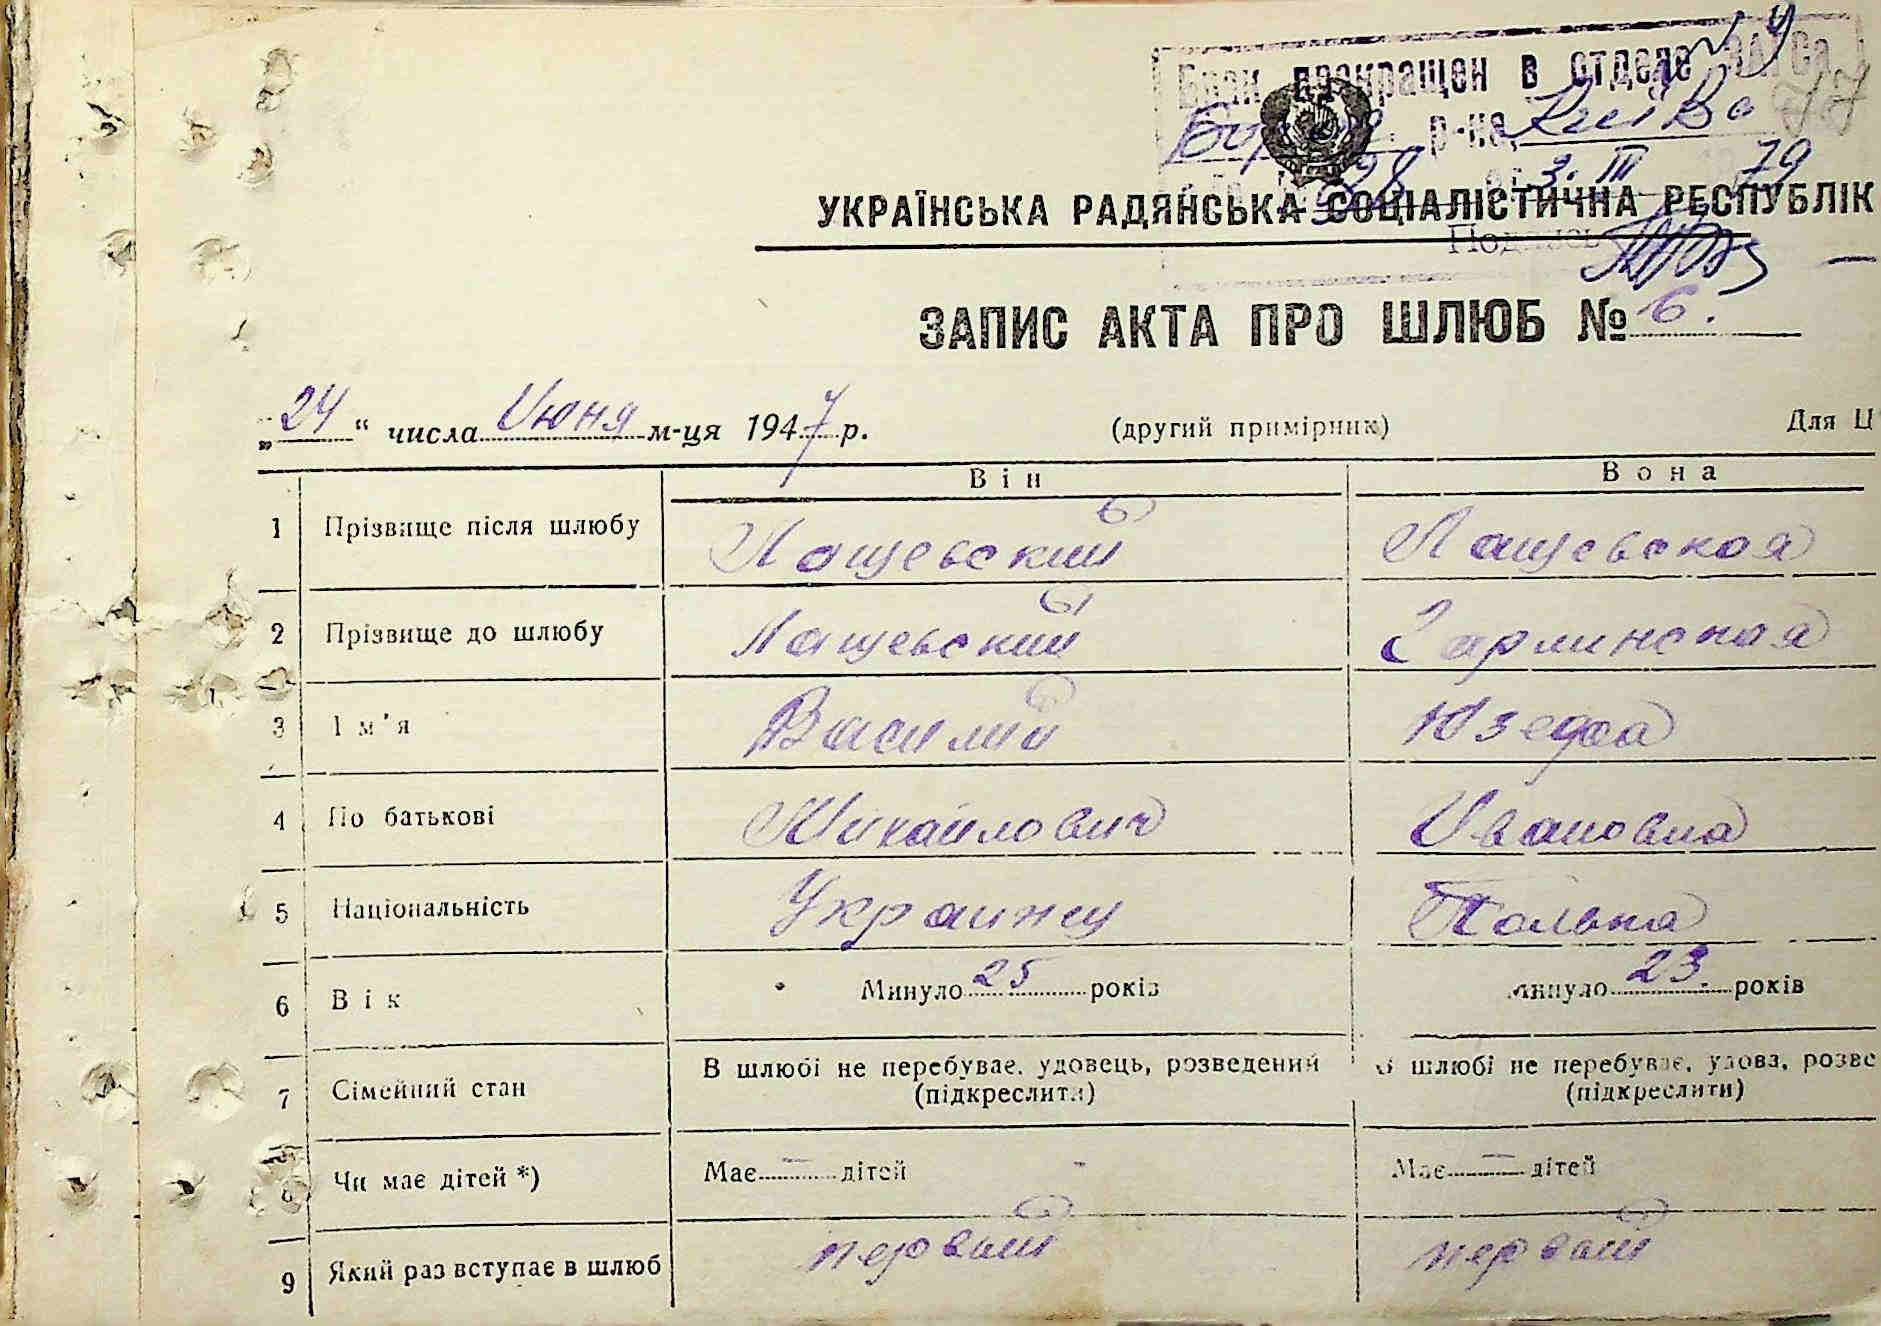 Брак прекращен в отделе ЗАГСа
р-на, Киева 77
3. III 79
УКРАЇНСЬКА РАДЯНСЬКА СОЦІАЛІСТИЧНА РЕСПУБЛІК
Подпись
ЗАПИС АКТА ПРО ШЛЮБ № 16.
„24“ числа Июня м-ця 1947 р. (другий примірник) Для Ц
Він Вона
1 Прізвище після шлюбу Лащевский Лащевская
2 Прізвище до шлюбу Лащевский Гарлинская
3 Ім'я Василий Юзефа
4 По батькові Михайлович Ивановна
5 Національність Украинец Полька
6 Вік Минуло 25 років Минуло 23. років
7 Сімейний стан В шлюбі не перебуває, удовець, розведений В шлюбі не перебуває, удова, розве
(підкреслити) (підкреслити)
8 Чи має дітей *) Має — дітей Має — дітей
9 Який раз вступає в шлюб первый первый